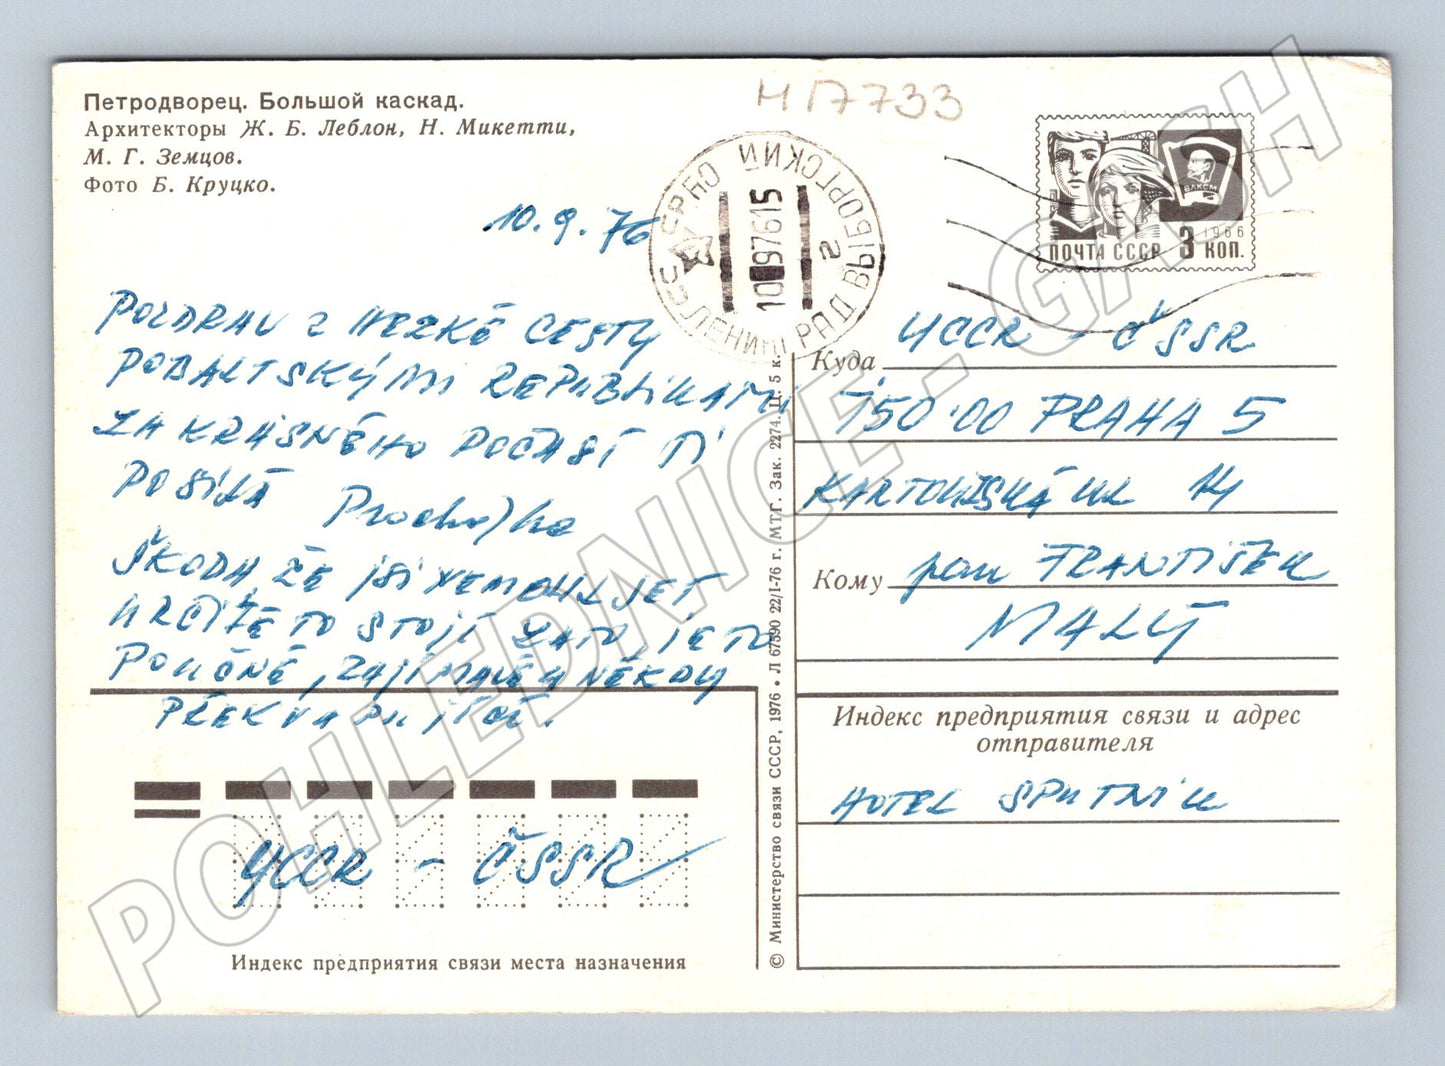 Петродворец. Большой каскад.
Архитекторы Ж. Б. Леблон, Н. Микетти,
М. Г. Земцов.
Фото Б. Круцко.
H17733
10.9.76
СССР
ЛЕНИНГРАД ВЫБОРГСКИЙ
10 97615
г
ВЛКСМ
1966
ПОЧТА СССР 3 КОП.
POZDRAV Z HEZKÉ CESTY
POBALTSKÝMI REPUBLIKAMI
ZA KRÁSNÉHO POČASÍ TI
POSÍLÁ Procházka
ŠKODA, ŽE JSI NEMOHL JET
URČITĚ TO STOJÍ ZATO, JE TO
POUČNÉ, ZAJÍMAVÉ A NĚKDY
PŘEKVAPUJÍCÍ.
ЧССR - ČSSR
Индекс предприятия связи места назначения
© Министерство связи СССР, 1976 • Л 67590 22/I-76 г. МТГ. Зак. 2274. Ц. 5 к.
ЧССR - ČSSR
Куда
150 00 PRAHA 5
UL 14
Кому pan FRANTIŠEK
MALÝ
Индекс предприятия связи и адрес
отправителя
HOTEL SPUTNIK
POHLEDNICE - GASH